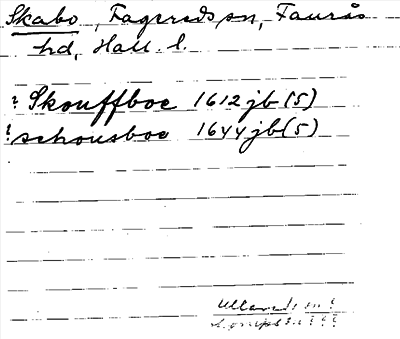 Skabo, Fagereds sn, Faurås
hd, Hall. l.
? Skouffboe 1612 jb (5)
? schousboe 1644 jb (5)
Ullareds sn?